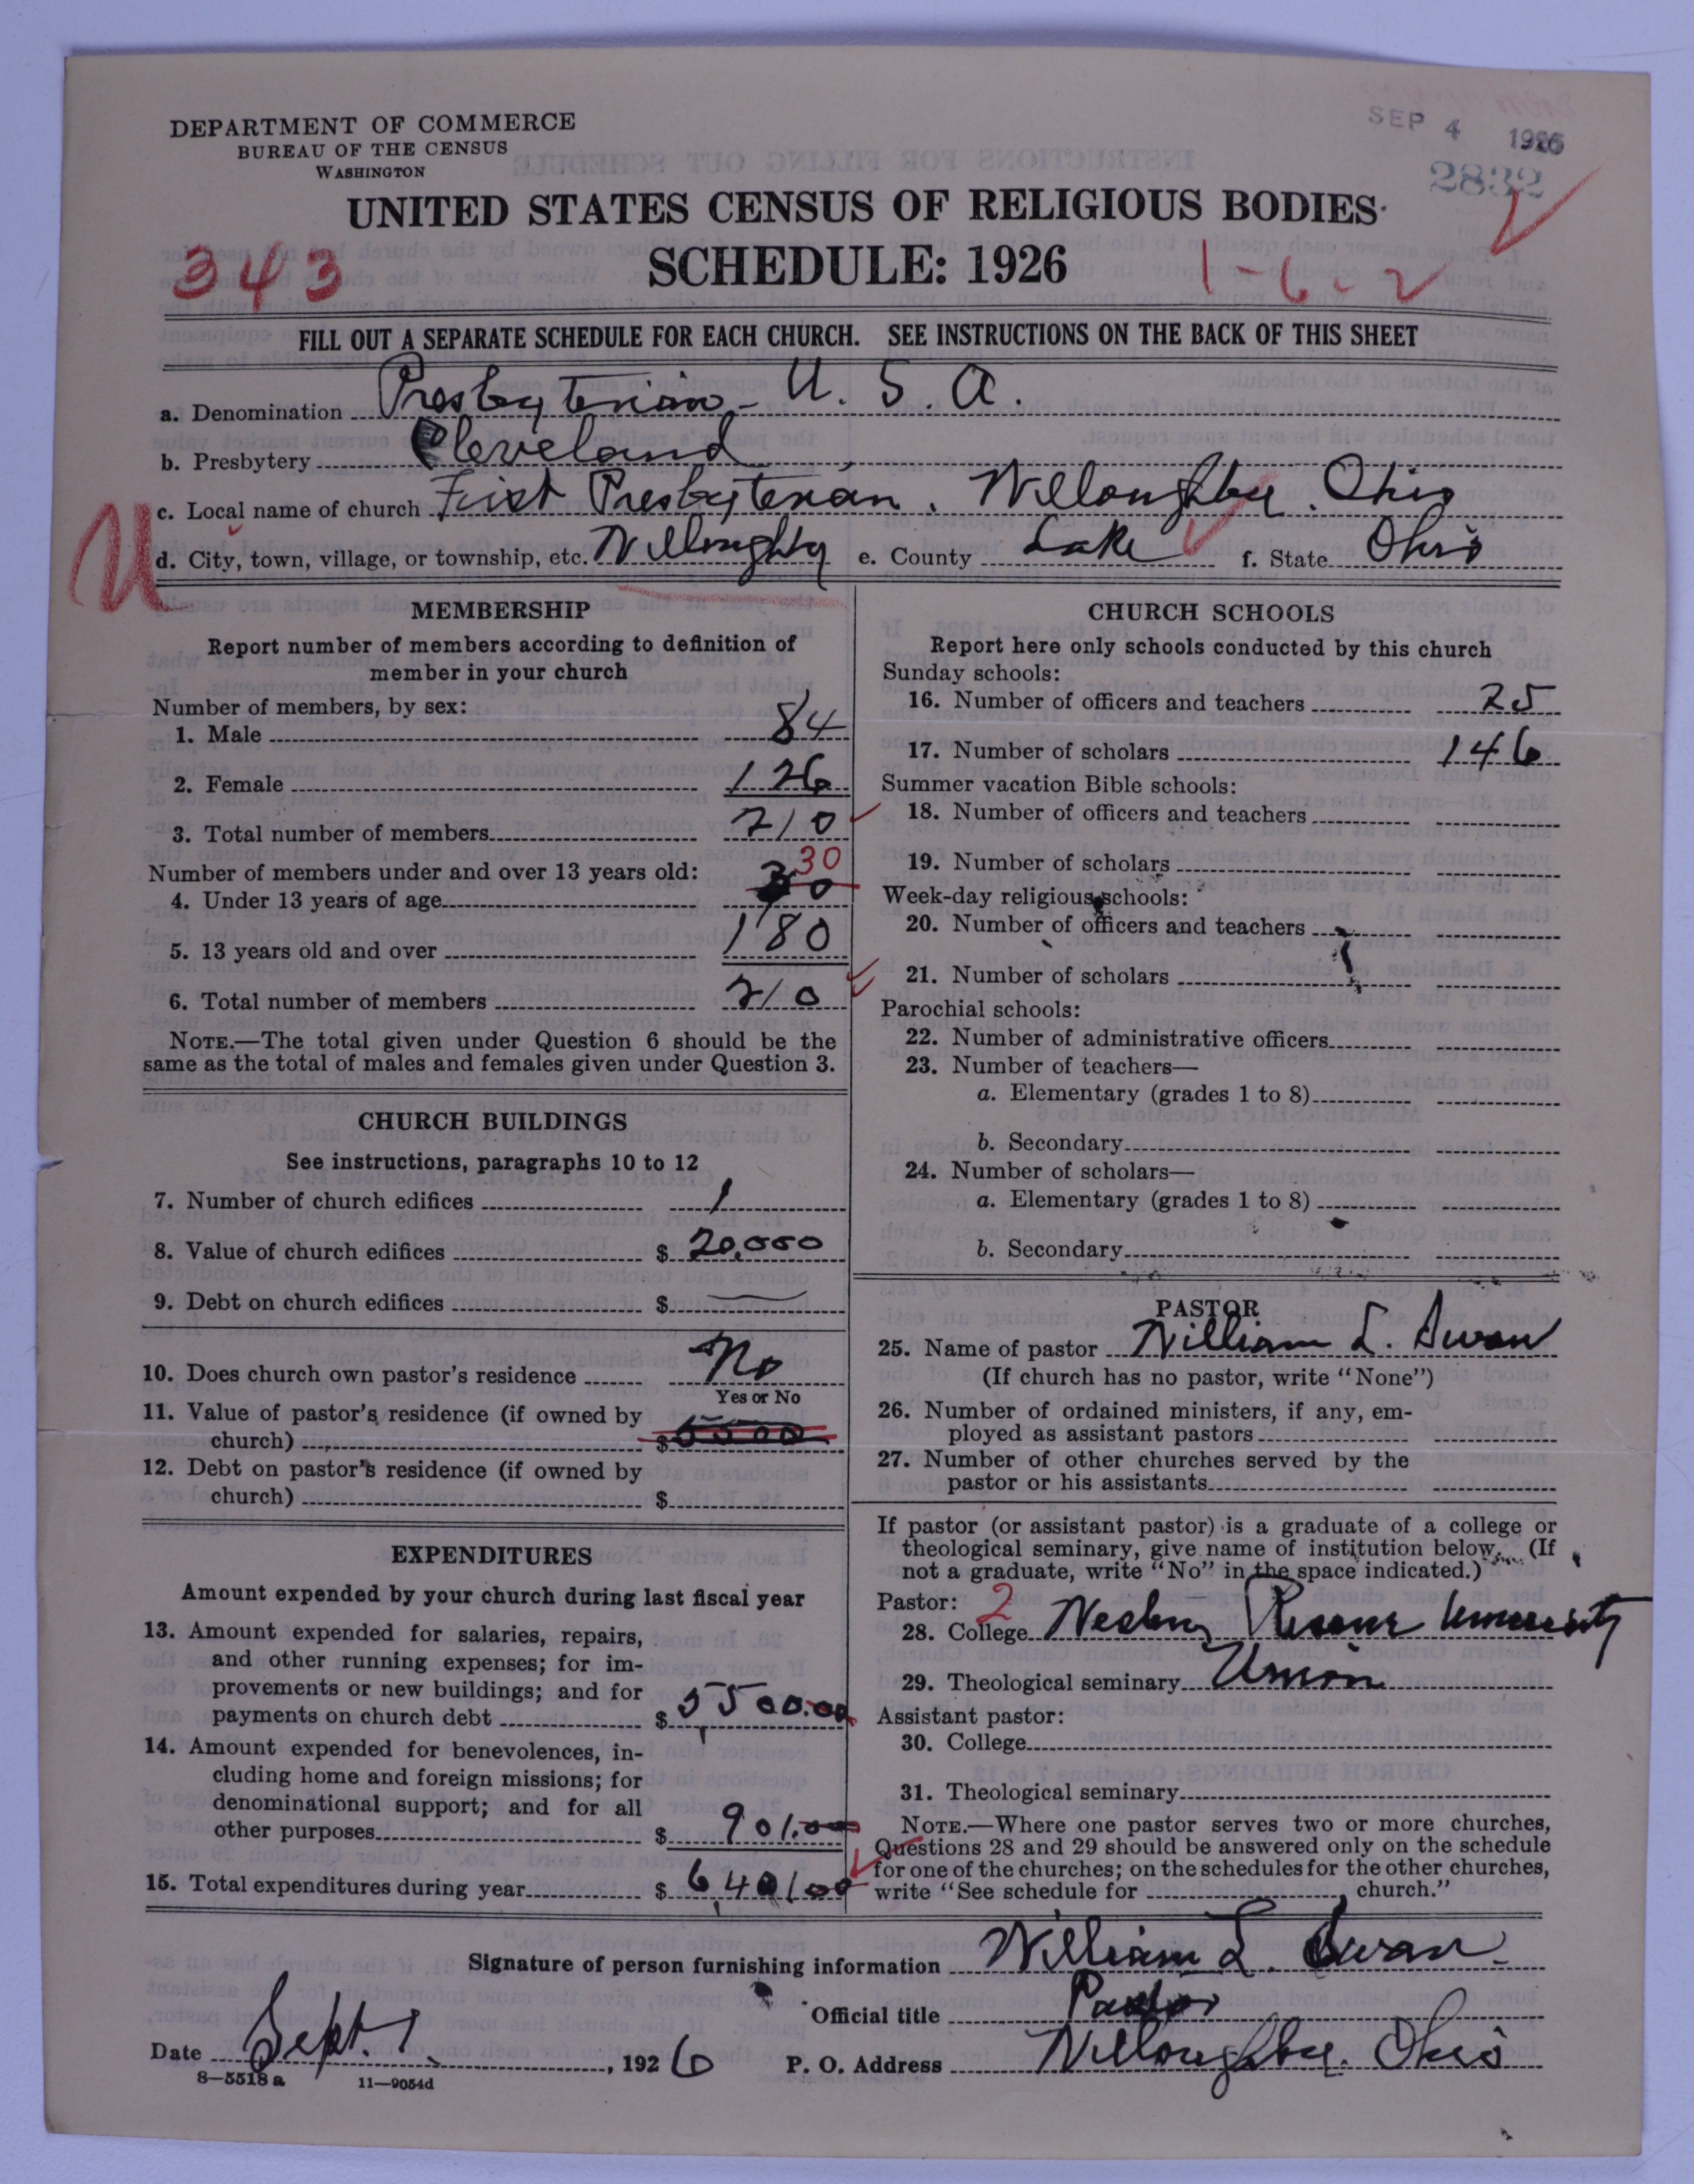 DEPARTMENT OF COMMERCE
BUREAU OF THE CENSUS
WASHINGTON
SEP 4 1926
2832
UNITED STATES CENSUS OF RELIGIOUS BODIES
SCHEDULE: 1926
343
1-6-2
FILL OUT A SEPARATE SCHEDULE FOR EACH CHURCH. SEE INSTRUCTIONS ON THE BACK OF THIS SHEET
a. Denomination Presbyterian - U. S. A.
b. Presbytery Cleveland
c. Local name of church First Presbyterian, Willoughby, Ohio
d. City, town, village, or township, etc. Willoughby e. County Lake f. State Ohio
MEMBERSHIP
Report number of members according to definition of
member in your church
Number of members, by sex:
1. Male 84
2. Female 126
3. Total number of members 210
Number of members under and over 13 years old:
30
4. Under 13 years of age
5. 13 years old and over 180
6. Total number of members 210
NOTE.—The total given under Question 6 should be the
same as the total of males and females given under Question 3.
CHURCH BUILDINGS
See instructions, paragraphs 10 to 12
7. Number of church edifices 1
8. Value of church edifices $ 20,000
9. Debt on church edifices $ —
10. Does church own pastor's residence No
Yes or No
11. Value of pastor's residence (if owned by
church) $ 5500
12. Debt on pastor's residence (if owned by
church) $
EXPENDITURES
Amount expended by your church during last fiscal year
13. Amount expended for salaries, repairs,
and other running expenses; for im-
provements or new buildings; and for
payments on church debt $ 5,500.00
14. Amount expended for benevolences, in-
cluding home and foreign missions; for
denominational support; and for all
other purposes $ 901.00
15. Total expenditures during year $ 6,401.00
CHURCH SCHOOLS
Report here only schools conducted by this church
Sunday schools:
16. Number of officers and teachers 25
17. Number of scholars 146
Summer vacation Bible schools:
18. Number of officers and teachers
19. Number of scholars
Week-day religious schools:
20. Number of officers and teachers
21. Number of scholars
Parochial schools:
22. Number of administrative officers
23. Number of teachers—
a. Elementary (grades 1 to 8)
b. Secondary
24. Number of scholars—
a. Elementary (grades 1 to 8)
b. Secondary
PASTOR
25. Name of pastor William L. Swan
(If church has no pastor, write "None")
26. Number of ordained ministers, if any, em-
ployed as assistant pastors
27. Number of other churches served by the
pastor or his assistants
If pastor (or assistant pastor) is a graduate of a college or
theological seminary, give name of institution below. (If
not a graduate, write "No" in the space indicated.)
Pastor: 2
28. College Western Reserve University
29. Theological seminary Union
Assistant pastor:
30. College
31. Theological seminary
NOTE.—Where one pastor serves two or more churches,
Questions 28 and 29 should be answered only on the schedule
for one of the churches; on the schedules for the other churches,
write "See schedule for , church."
Signature of person furnishing information William L. Swan
Official title Pastor
Date Sept. 1, 1926 P. O. Address Willoughby, Ohio
8—5518 a 11—9054d